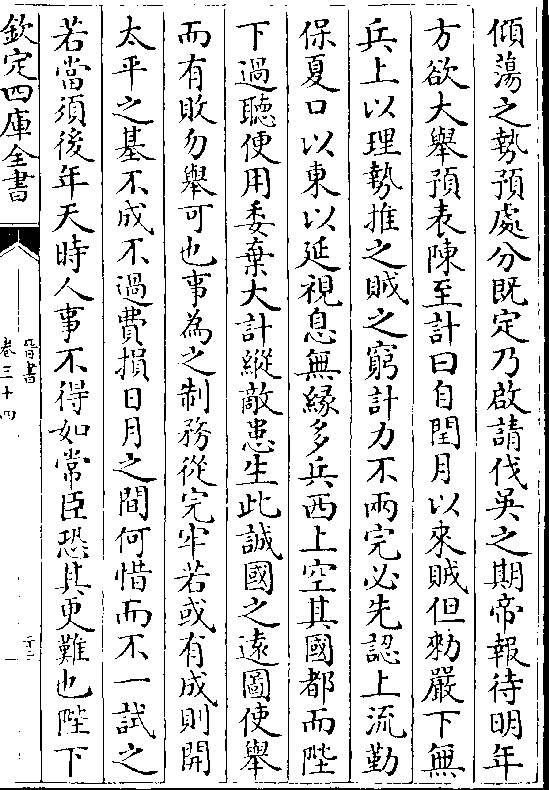 傾蕩之勢預處分既定乃啟請伐吳之期帝報待明年
方欲大舉預表陳至計曰自閏月以來賊但勑嚴下無
兵上以理勢推之賊之窮計力不兩完必先認上流勤
保夏口以東以延視息無緣多兵西上空其國都而陛
下過聽便用委棄大計縱敵患生此誠國之遠圖使舉
而有敗勿舉可也事為之制務從完牢若或有成則開
太平之基不成不過費損日月之間何惜而不一試之
若當須後年天時人事不得如常臣恐其更難也陛下
欽定四庫全書
晉書
卷三十四